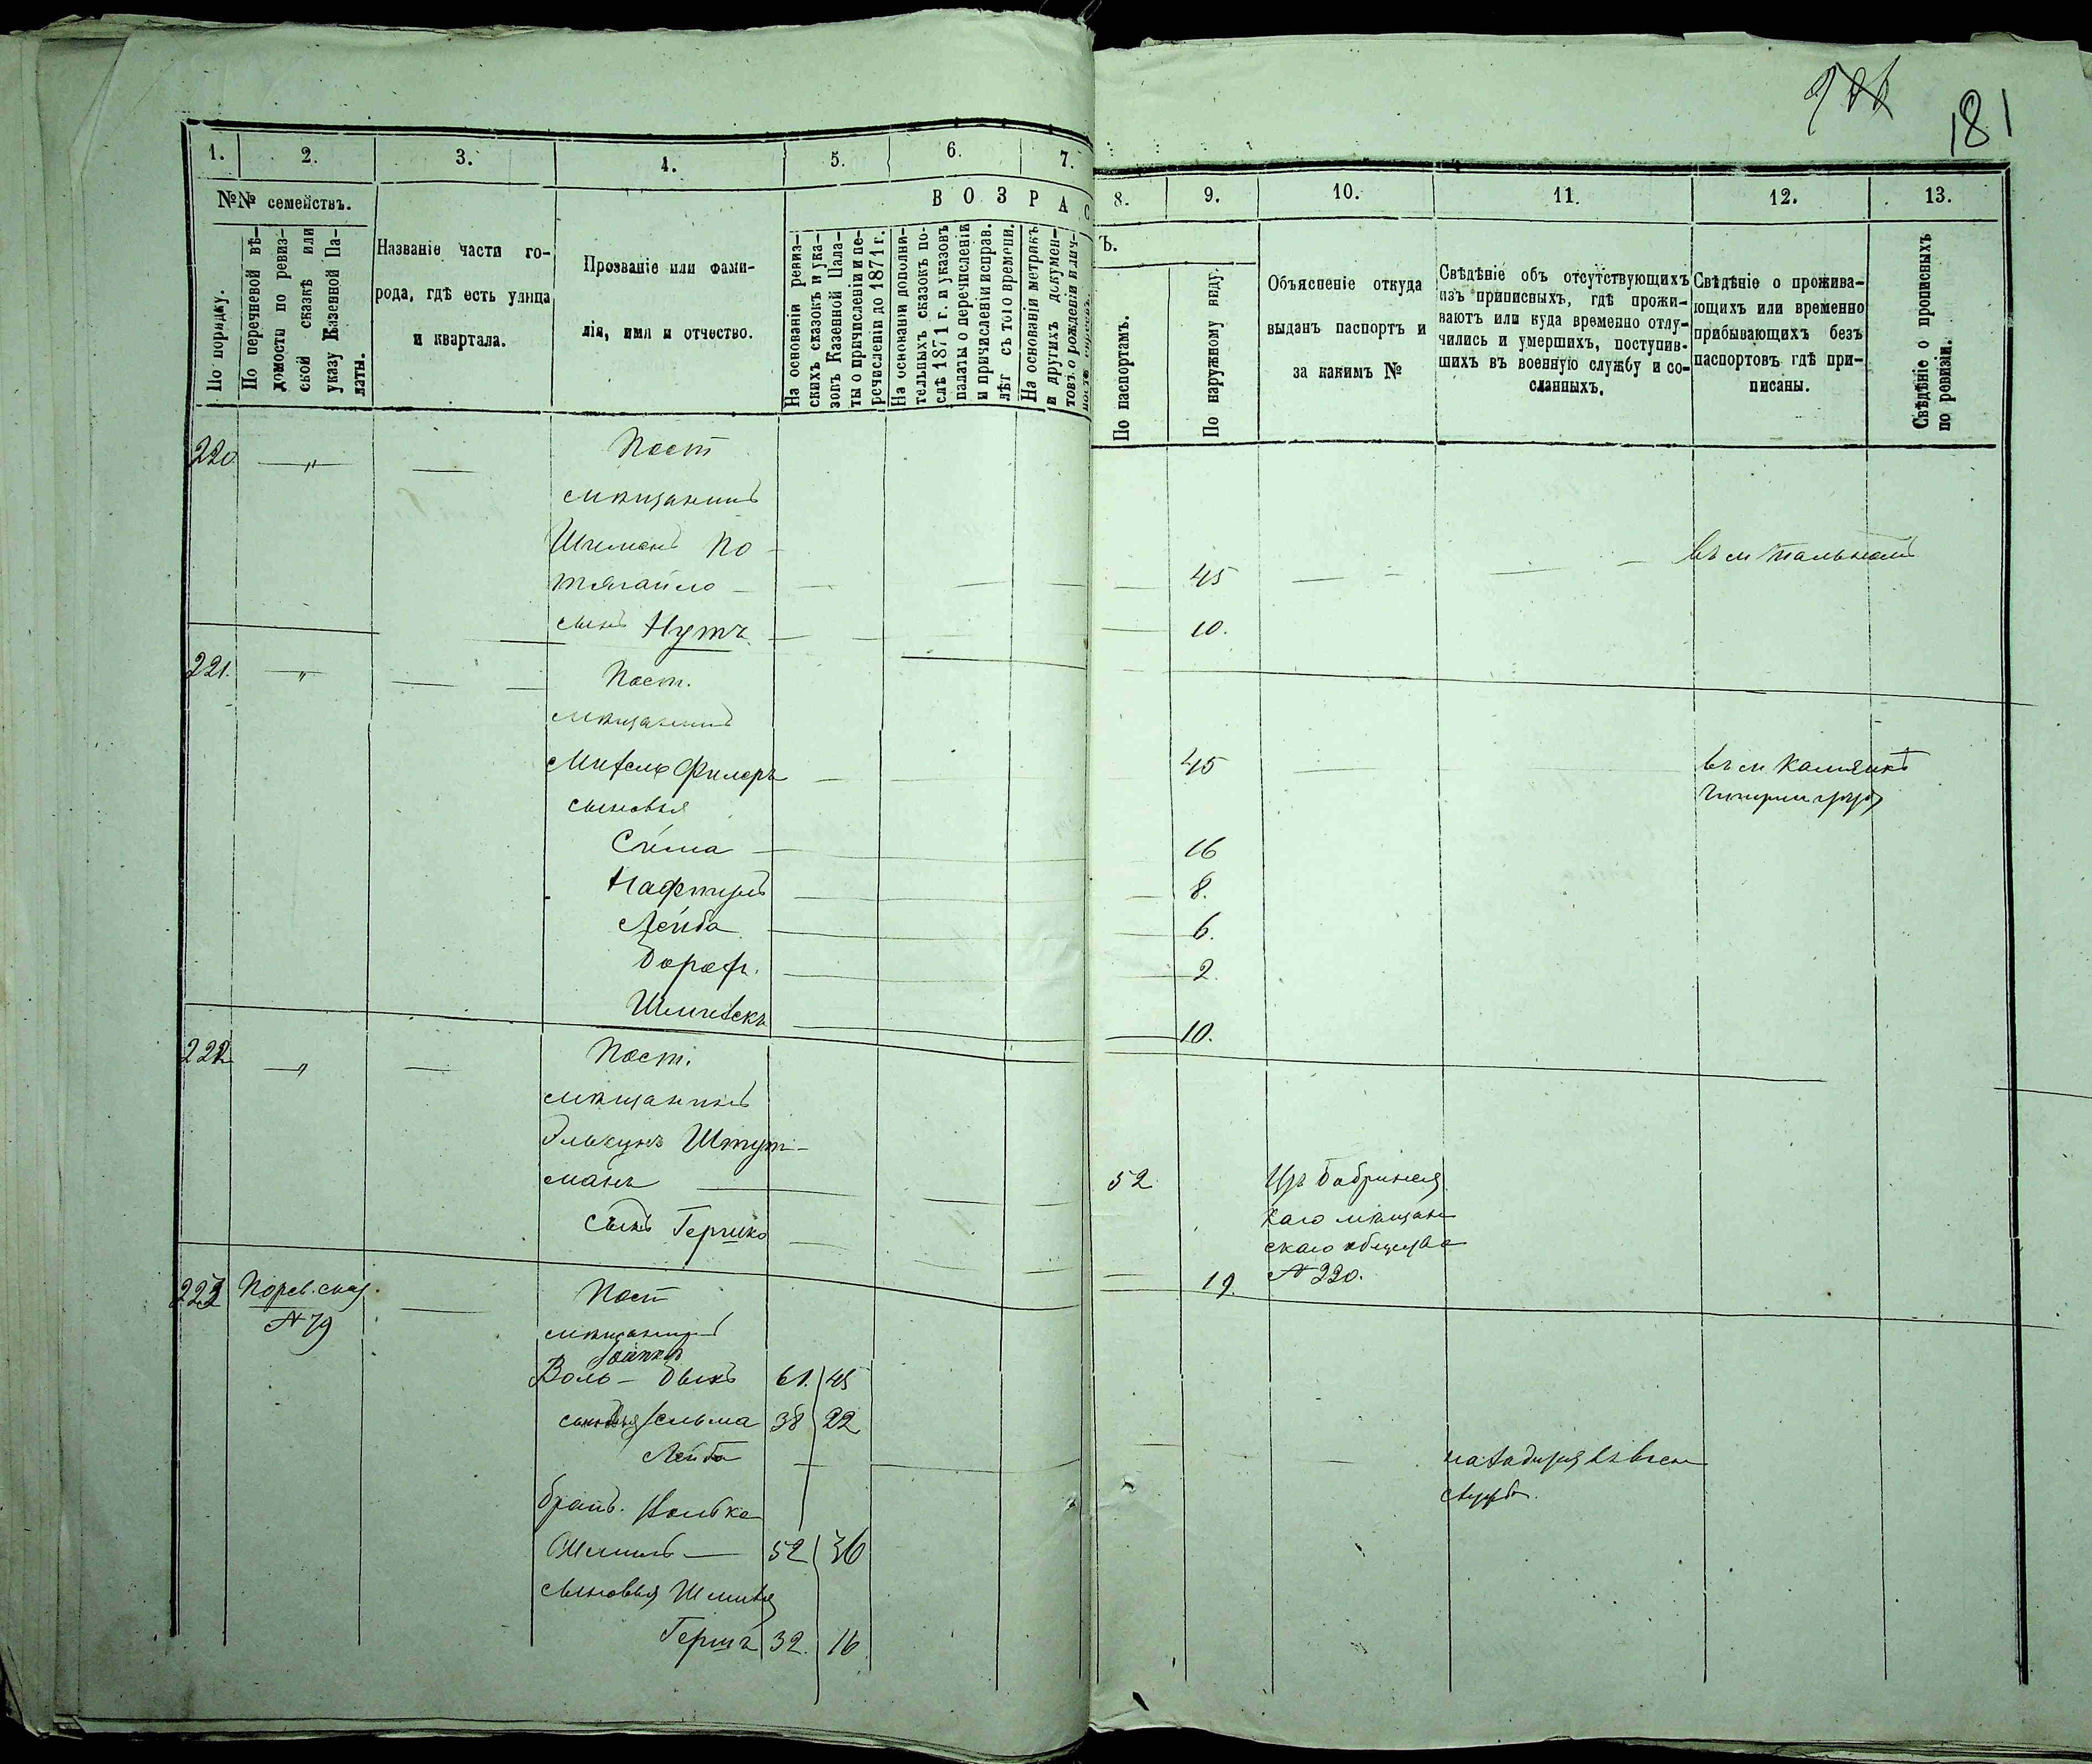 181
1. 2. 3. 4. 5. 6. 7.
8. 9. 10. 11. 12. 13.
№№ семействъ.
По порядку.
По перечневой вѣ-
домости по ревиз-
ской сказкѣ или
указу Казенной Па-
латы.
Названіе части го-
рода, гдѣ есть улица
и квартала.
Прозваніе или фами-
лія, имя и отчество.
ВОЗРАС
На основаніи ревиз-
скихъ сказокъ и ука-
зовъ Казенной Пала-
ты о причисленіи и пе-
речисленіи до 1871 г.
На основаніи дополни-
тельныхъ сказокъ по-
слѣ 1871 г. и указовъ
палаты о перечисленіи
и причисленіи исправ.
лѣт съ того времени.
На основаніи метрикъ
и другихъ докумен-
товъ о рожденіи и лич-
Ъ.
По паспортамъ.
По наружному виду.
Объясненіе откуда
выданъ паспортъ и
за какимъ №
Свѣдѣніе объ отсутствующихъ
изъ приписныхъ, гдѣ прожи-
ваютъ или куда временно отлу-
чились и умершихъ, поступив-
шихъ въ военную службу и со-
сланныхъ.
Свѣдѣніе о прожива-
ющихъ или временно
прибывающихъ безъ
паспортовъ гдѣ при-
писаны.
Свѣдѣніе о прописныхъ
по ревизіи.
220 — " — — Пост
мѣщанинъ
Шимонъ По-
тягайло — 45 въ м Тальномъ
сынъ Нутъ — 10.
221. — " — — Пост.
мѣщанинъ
Михель Филеръ — 45 въ м Каменкѣ
сыновья
Сима — 16
Нафтулъ 8.
Лейба 6.
Борох. 2.
10.
222 — " — — Пост.
мѣщанинъ
Элькунъ Штут-
манъ — 52 Изъ Бобринец
каго мѣщан
скаго общества
сынъ Гершко 19. № 220.
223 По рев. скаж. — Пост
№ 79
мѣщанинъ
Воль — Быкъ 61. 45
сыновья Зельма 38 22
Лейба — находится въ воен
службѣ.
братъ.
Шмиль — 52 36
сыновья Шмиля
Гершъ 32. 16